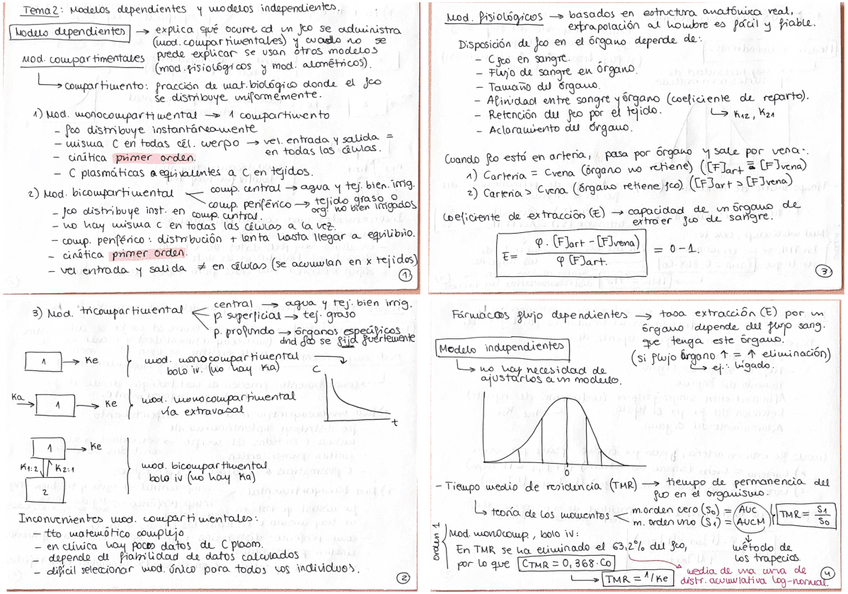 Tema 2: Modelos dependientes y modelos independientes.
Modelo dependientes → explica qué ocurre cd un fco se administra
(mod. compartimentales) y cuando no se
puede explicar se usan otros modelos
(mod. fisiológicos y mod. alométricos).
mod. compartimentales
→ compartimento: fracción de mat. biológico donde el fco
se distribuye uniformemente.
1) Mod. monocompartimental → 1 compartimento
- fco distribuye instantáneamente
- misma C en todas cél. cuerpo → vel. entrada y salida =
en todas las células.
- cinética primer orden.
- C plasmáticas equivalentes a C en tejidos.
2) Mod. bicompartimental
comp. central → agua y tej. bien. irrig.
comp. periférico → tejido graso o
org no bien irrigados
- fco distribuye inst. en comp. central.
- no hay misma C en todas las células a la vez.
- comp. periférico: distribución + lenta hasta llegar a equilibrio.
- cinética primer orden.
- vel entrada y salida ≠ en células (se acumulan en x tejidos)
1
Mod. fisiológicos → basados en estructura anatómica real.
extrapolación al hombre es fácil y fiable.
Disposición de fco en el órgano depende de:
- C fco en sangre.
- Flujo de sangre en órgano.
- Tamaño del órgano.
- Afinidad entre sangre y órgano (coeficiente de reparto).
- Retención del fco por el tejido. → K12, K21
- Aclaramiento del órgano.
Cuando fco está en arteria, pasa por órgano y sale por vena:
1) Carteria = Cvena (órgano no retiene) ([F]art = [F]vena)
2) Carteria > Cvena (órgano retiene fco) ([F]art > [F]vena)
Coeficiente de extracción (E) → capacidad de un órgano de
extraer fco de sangre.
E = φ · [F]art - [F]vena) / φ [F]art. = 0-1.
3
3) Mod. tricompartimental
central → agua y tej. bien irrig.
p. superficial → tej. graso
p. profundo → órganos específicos
dnd fco se fija fuertemente
1 → Ke
mod. monocompartimental
bolo iv. (no hay Ka)
C
t
Ka → 1 → Ke
mod. monocompartimental
vía extravasal
1 → Ke
K1:2 K2:1
2
mod. bicompartimental
bolo iv (no hay Ka)
Inconvenientes mod. compartimentales:
- tto matemático complejo.
- en clínica hay pocos datos de C plasm.
- depende de fiabilidad de datos calculados
- difícil seleccionar mod. único para todos los individuos.
2
Fármacos flujo dependientes → tasa extracción (E) por un
órgano depende del flujo sang.
que tenga este órgano.
(si flujo órgano ↑ = ↑ eliminación)
→ ej.: hígado.
Modelo independientes
→ no hay necesidad de
ajustarlos a un modelo.
0
- Tiempo medio de residencia (TMR) → tiempo de permanencia del
fco en el organismo.
→ teoría de los momentos
m. orden cero (S0) = AUC
m. orden uno (S1) = AUCM
TMR = S1 / S0
método de
los trapecios.
orden 1
Mod monocomp, bolo iv:
En TMR se ha eliminado el 63,2% del fco,
por lo que CTMR = 0,368·C0
→ TMR = 1/Ke
media de una curva de
distr. acumulativa log-normal.
4